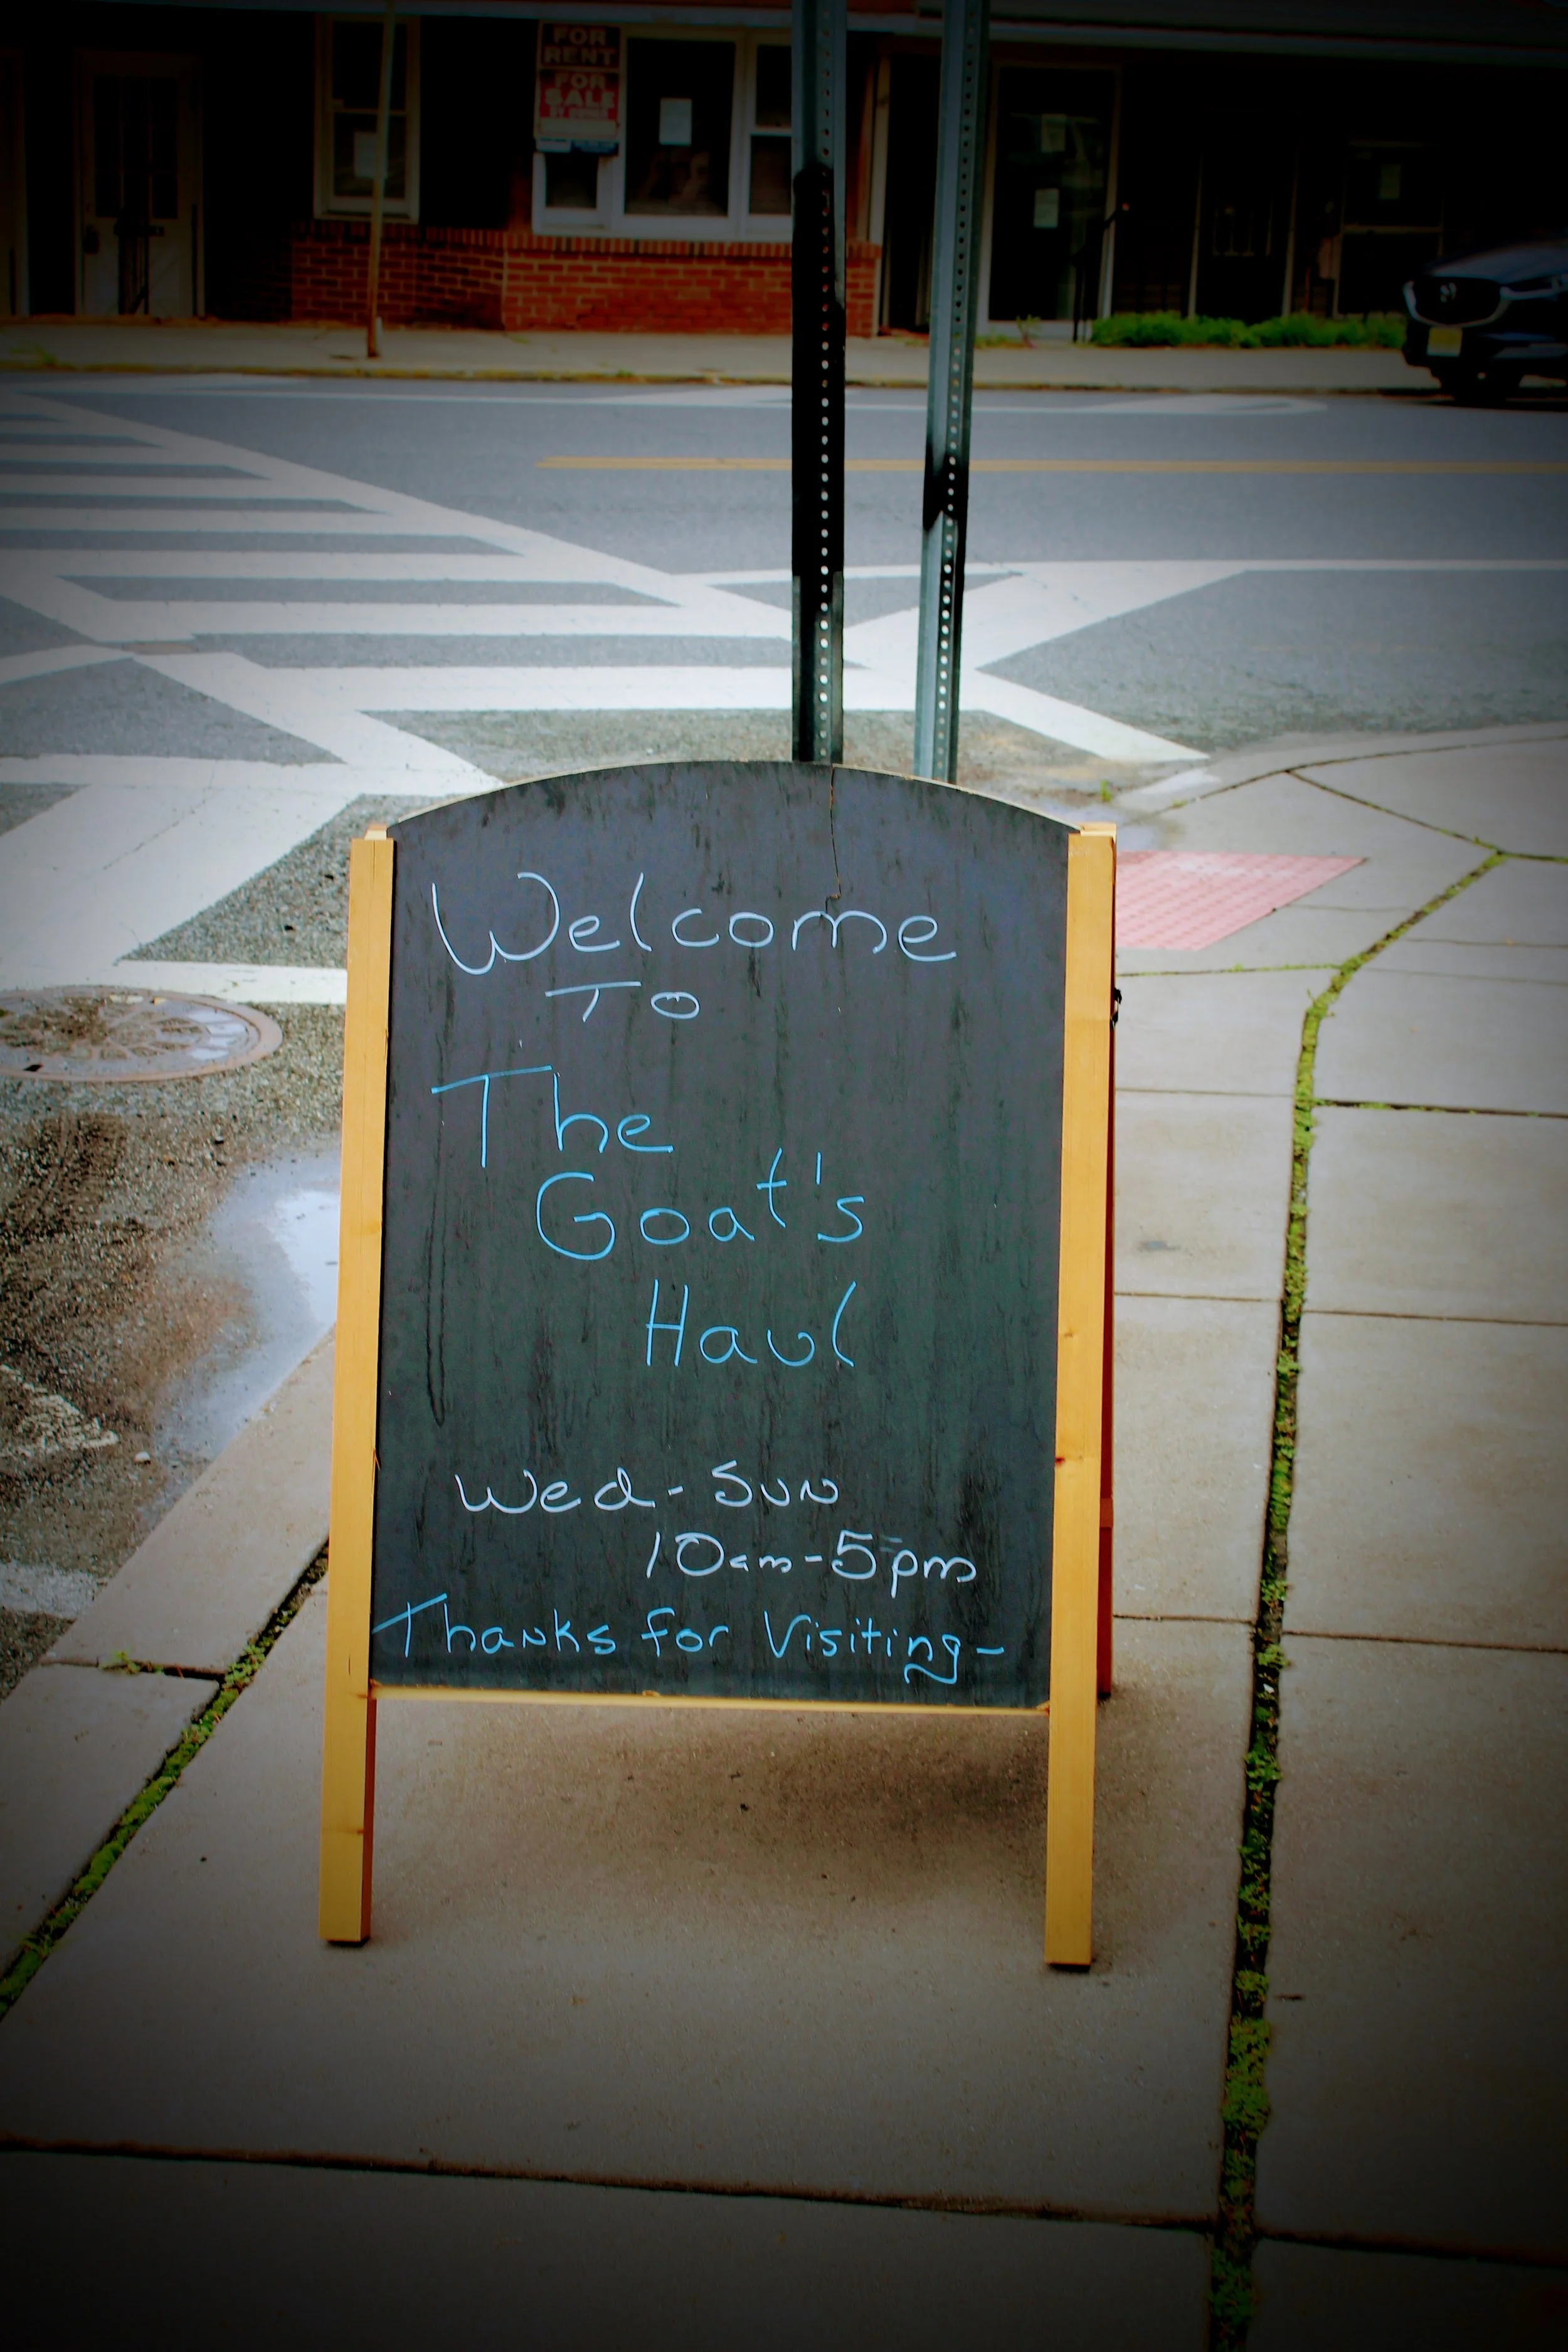 FOR
RENT
FOR
SALE
Welcome
To
The
Goat's
Haul
Wed - Sun
10am-5pm
Thanks for Visiting-